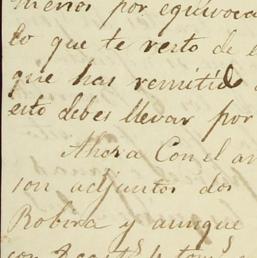 menos por equivoca
lo que te resto de e
que has remitido
esto debes llevar por
Ahora Con el an
son adjuntos dos
Robira y aunque
con